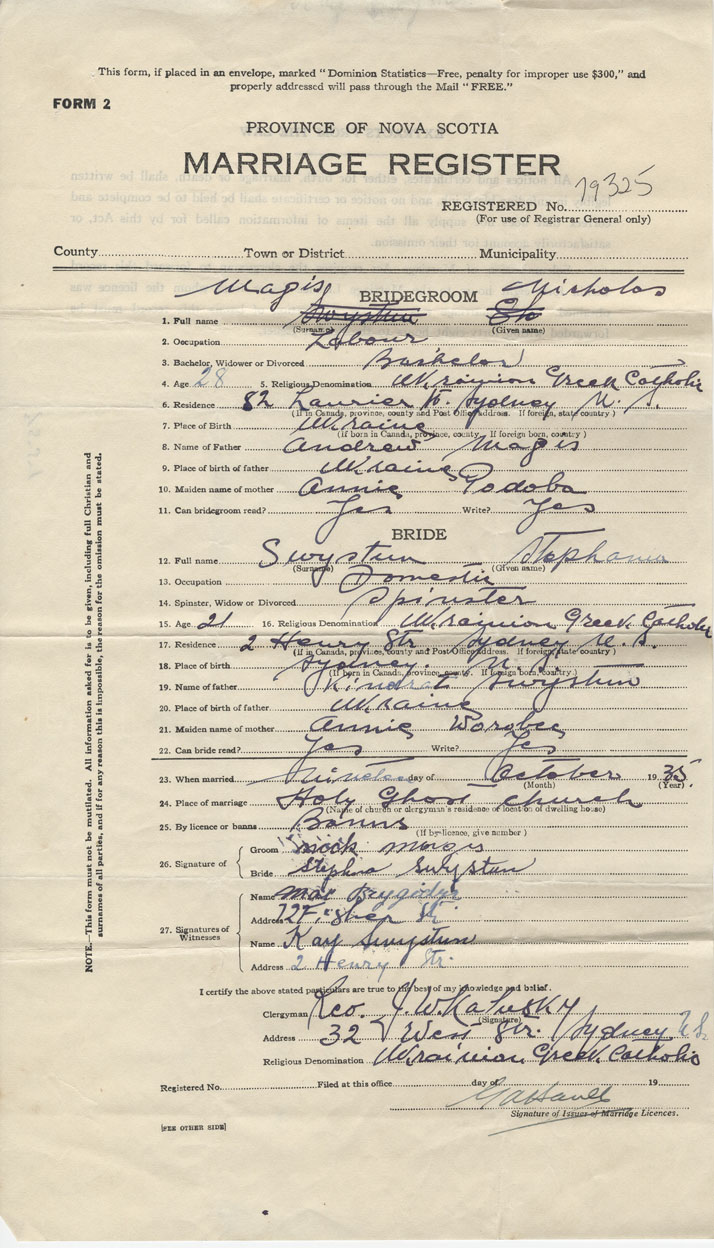 This form, if placed in an envelope, marked "Dominion Statistics—Free, penalty for improper use $300," and
properly addressed will pass through the Mail "FREE."
FORM 2
PROVINCE OF NOVA SCOTIA
MARRIAGE REGISTER
REGISTERED No. 19325
(For use of Registrar General only)
County Town or District Municipality
Magis BRIDEGROOM Nicholas
1. Full name Swystun
(Surname) (Given name)
2. Occupation Labour
3. Bachelor, Widower or Divorced Bachelor
4. Age 28 5. Religious Denomination Ukrainion Greek Catholic
6. Residence 82 Laurier St. Sydney N. S.
(If in Canada, province, county and Post Office address. If foreign, state country)
7. Place of Birth Ukraine
(If born in Canada, province, county. If foreign born, country)
8. Name of Father Andrew Magis
9. Place of birth of father Ukraine
10. Maiden name of mother Annie Podoba
11. Can bridegroom read? Yes Write? Yes
BRIDE
12. Full name Swystun Stephania
(Surname) (Given name)
13. Occupation Domestic
14. Spinster, Widow or Divorced Spinster
15. Age 21 16. Religious Denomination Ukrainion Greek Catholic
17. Residence 2 Henry Str. Sydney N. S.
(If in Canada, province, county and Post Office address. If foreign, state country)
18. Place of birth Sydney. N. S.
(If born in Canada, province, county. If foreign born, country)
19. Name of father Kindrat Swystun
20. Place of birth of father Ukraine
21. Maiden name of mother Annie Worobec
22. Can bride read? Yes Write? Yes
23. When married day of October 1935
(Month) (Year)
24. Place of marriage Holy Ghost church
(Name of church or clergyman's residence or location of dwelling house)
25. By licence or banns Banns
(If by licence, give number)
26. Signature of
Groom mick morgis
Bride Stephia Swystun
27. Signatures of Witnesses
Name
Address
Name Kay Swystun
Address 2 Henry Str.
I certify the above stated particulars are true to the best of my knowledge and belief.
Clergyman Rev. J. W. Kalusky
(Signature)
Address 32 West Str. Sydney N.S.
Religious Denomination Ukrainian Greek Catholic
Registered No. Filed at this office day of 19
Signature of Issuer of Marriage Licences.
[SEE OTHER SIDE]
NOTE.—This form must not be mutilated. All information asked for is to be given, including full Christian and
surnames of all parties, and if for any reason this is impossible, the reason for the omission must be stated.